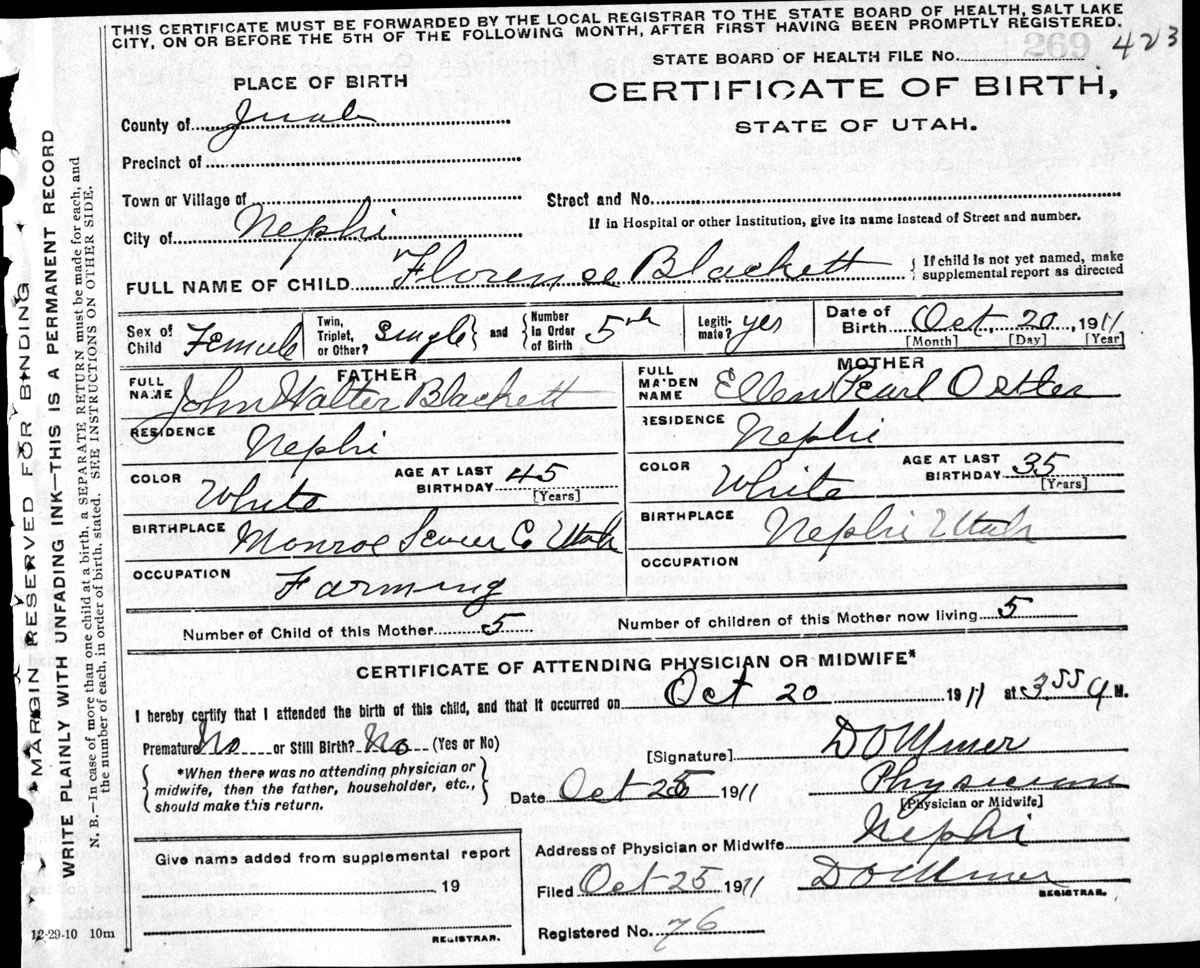 THIS CERTIFICATE MUST BE FORWARDED BY THE LOCAL REGISTRAR TO THE STATE BOARD OF HEALTH, SALT LAKE
CITY, ON OR BEFORE THE 5TH OF THE FOLLOWING MONTH, AFTER FIRST HAVING BEEN PROMPTLY REGISTERED.
269 423
STATE BOARD OF HEALTH FILE No.
PLACE OF BIRTH
CERTIFICATE OF BIRTH,
STATE OF UTAH.
County of Juab
Precinct of
Town or Village of
Street and No.
If in Hospital or other Institution, give its name instead of Street and number.
City of Nephi
FULL NAME OF CHILD Florence Blackett
{ If child is not yet named, make
supplemental report as directed
Sex of
Child Female
Twin,
Triplet,
or Other? Single
and
Number
in Order
of Birth 5th
Legiti-
mate? yes
Date of
Birth Oct. 20, 1911
[Month] [Day] [Year]
FATHER
FULL
NAME John Walter Blackett
RESIDENCE Nephi
COLOR White
AGE AT LAST
BIRTHDAY 45
[Years]
BIRTHPLACE Monroe Sevier Co Utah
OCCUPATION Farming
MOTHER
FULL
MAIDEN
NAME Ellen Pearl Ostler
RESIDENCE Nephi
COLOR White
AGE AT LAST
BIRTHDAY 35
[Years]
BIRTHPLACE Nephi Utah
OCCUPATION
Number of Child of this Mother 5
Number of children of this Mother now living 5
CERTIFICATE OF ATTENDING PHYSICIAN OR MIDWIFE*
I hereby certify that I attended the birth of this child, and that it occurred on Oct 20 1911 at 3.55 M.
Premature No or Still Birth? No (Yes or No)
*When there was no attending physician or
midwife, then the father, householder, etc.,
should make this return.
[Signature]
Date Oct 25 1911
Physician
[Physician or Midwife]
Address of Physician or Midwife Nephi
Give name added from supplemental report
19
REGISTRAR.
Filed Oct 25 1911
REGISTRAR.
Registered No. 76
12-29-10 10m
MARGIN RESERVED FOR BINDING
WRITE PLAINLY WITH UNFADING INK—THIS IS A PERMANENT RECORD
N. B.—In case of more than one child at a birth, a SEPARATE RETURN must be made for each, and
the number of each, in order of birth, stated. SEE INSTRUCTIONS ON OTHER SIDE.